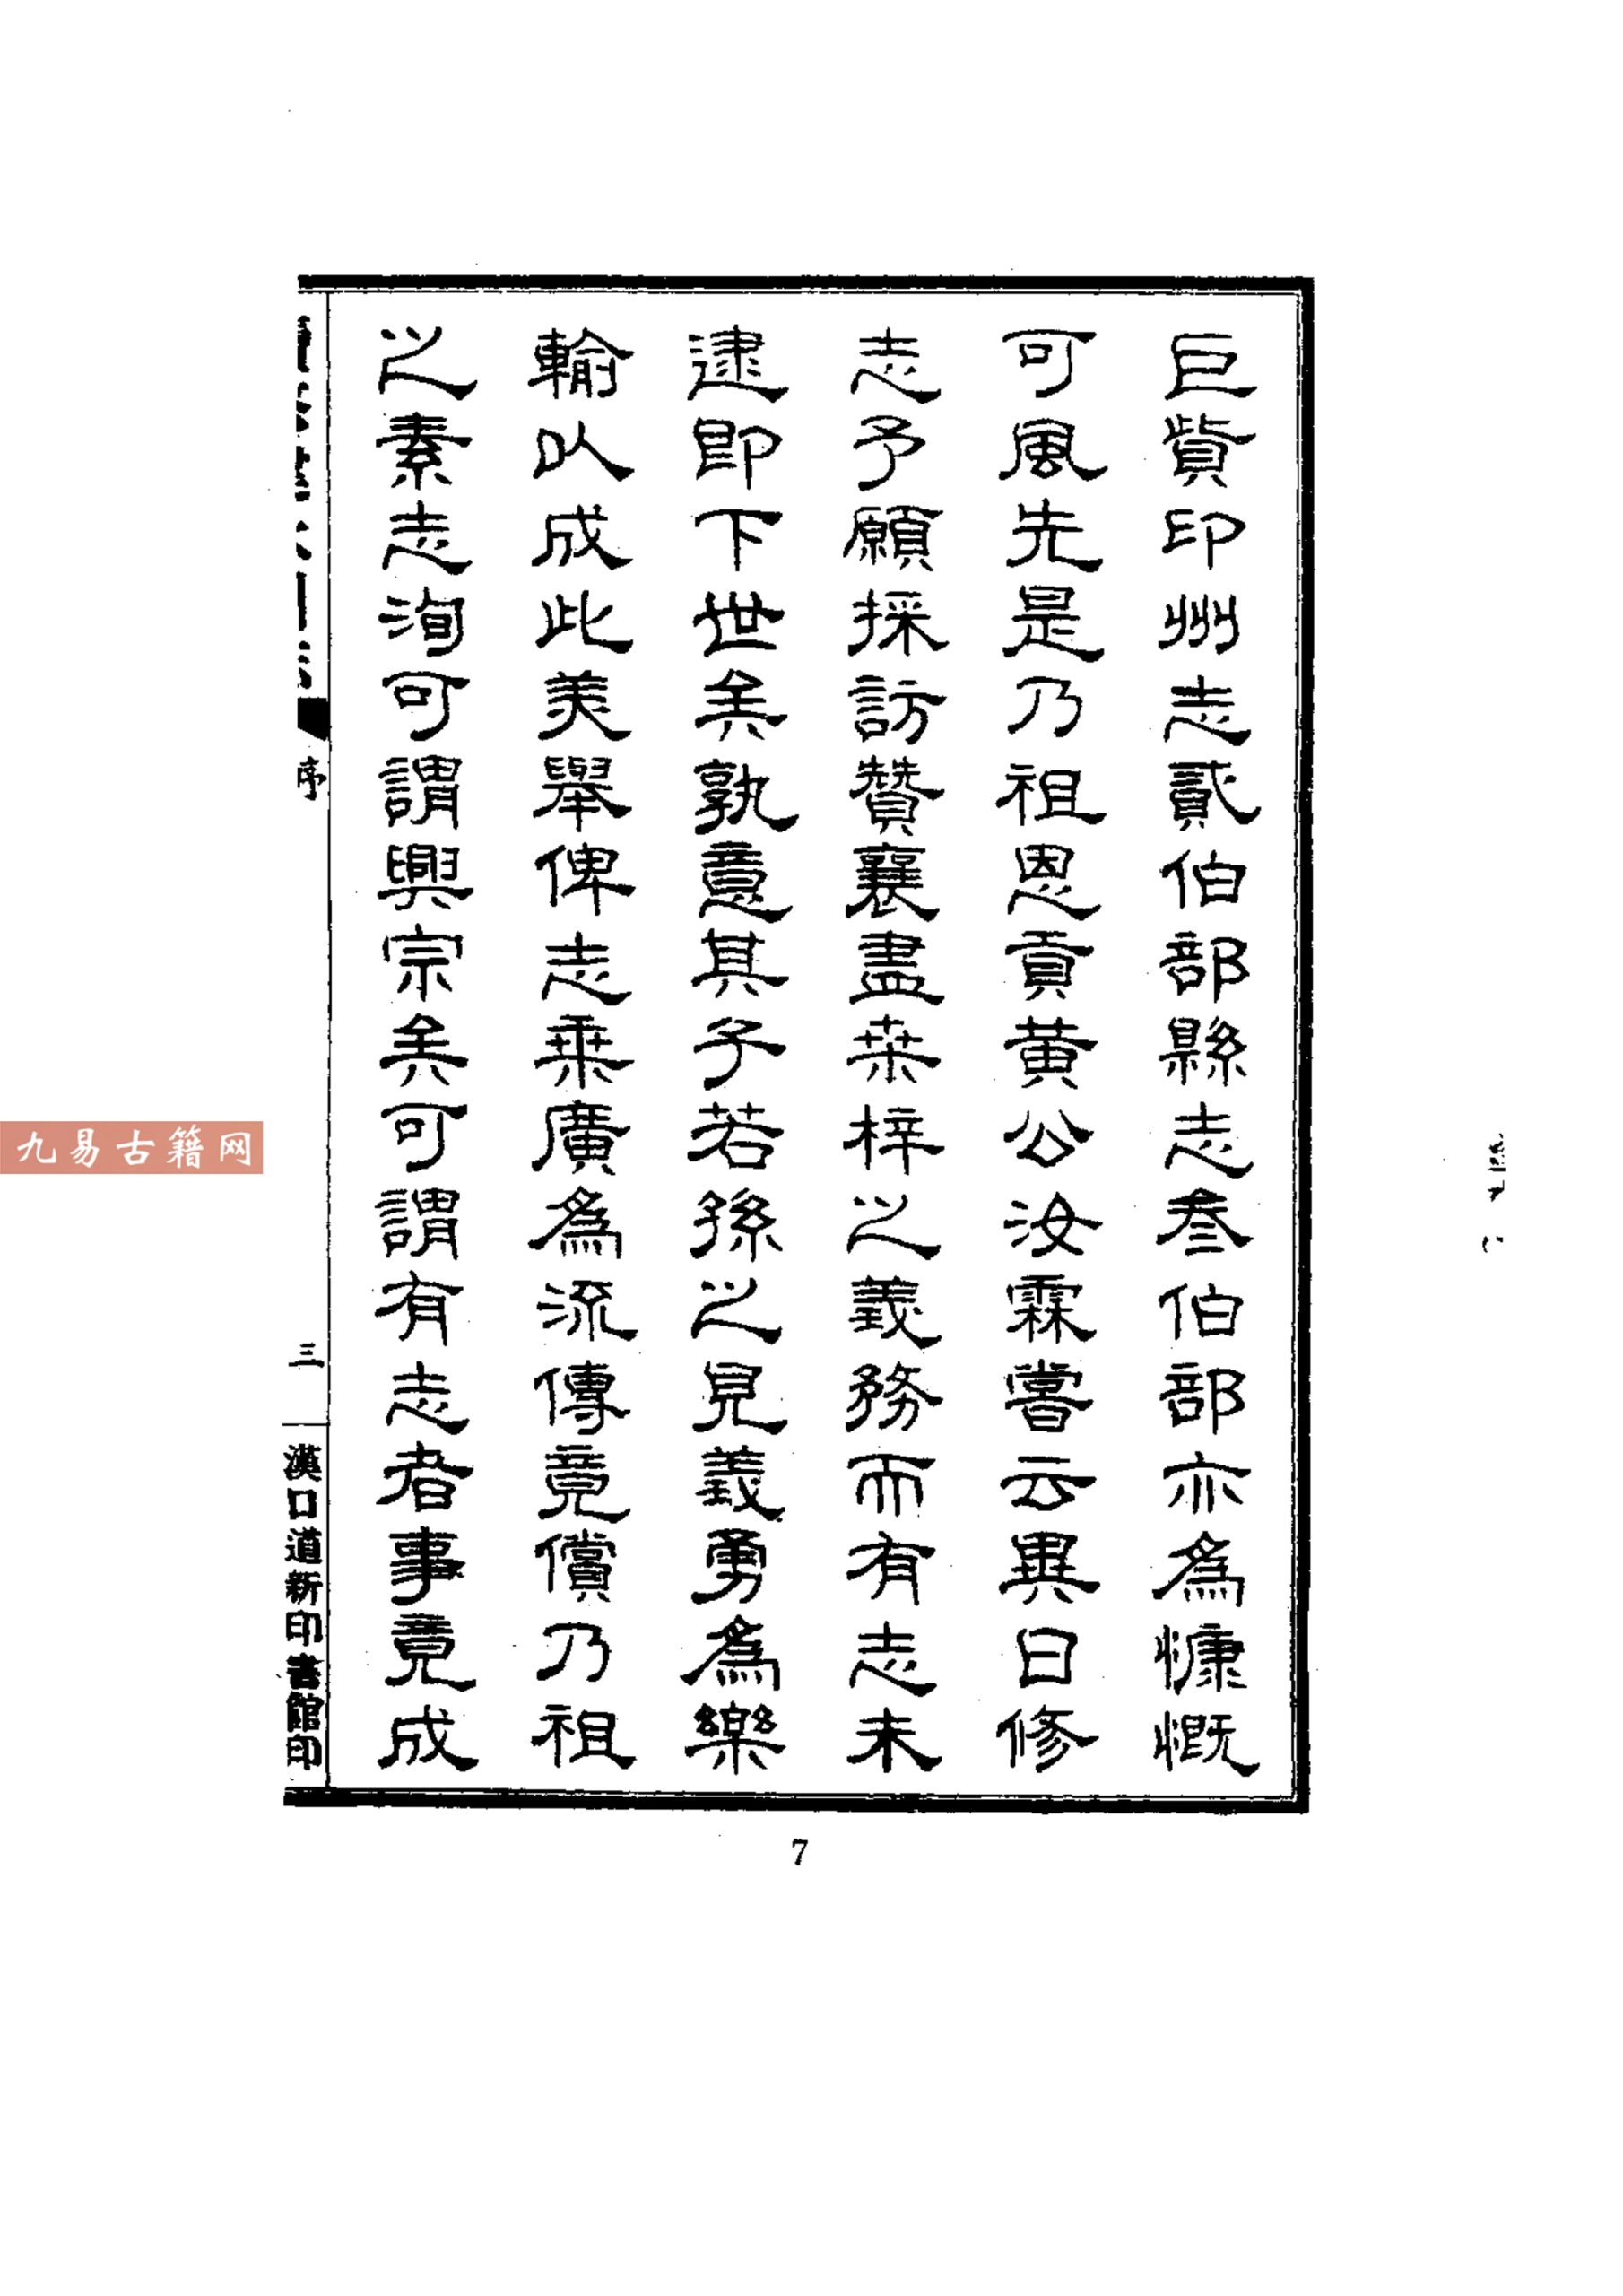 巨貲印州志貳伯部縣志叁伯部亦為慷慨
可風先是乃祖恩貢黃公汝霖嘗云異日修
志予願採訪贊襄盡桒梓之義務而有志未
逮即下世矣孰意其子若孫之見義勇為樂
輸以成此美舉俾志乘廣為流傳竟償乃祖
之素志洵可謂興宗矣可謂有志者事竟成
序
三
漢口道新印書館印
7
九易古籍网